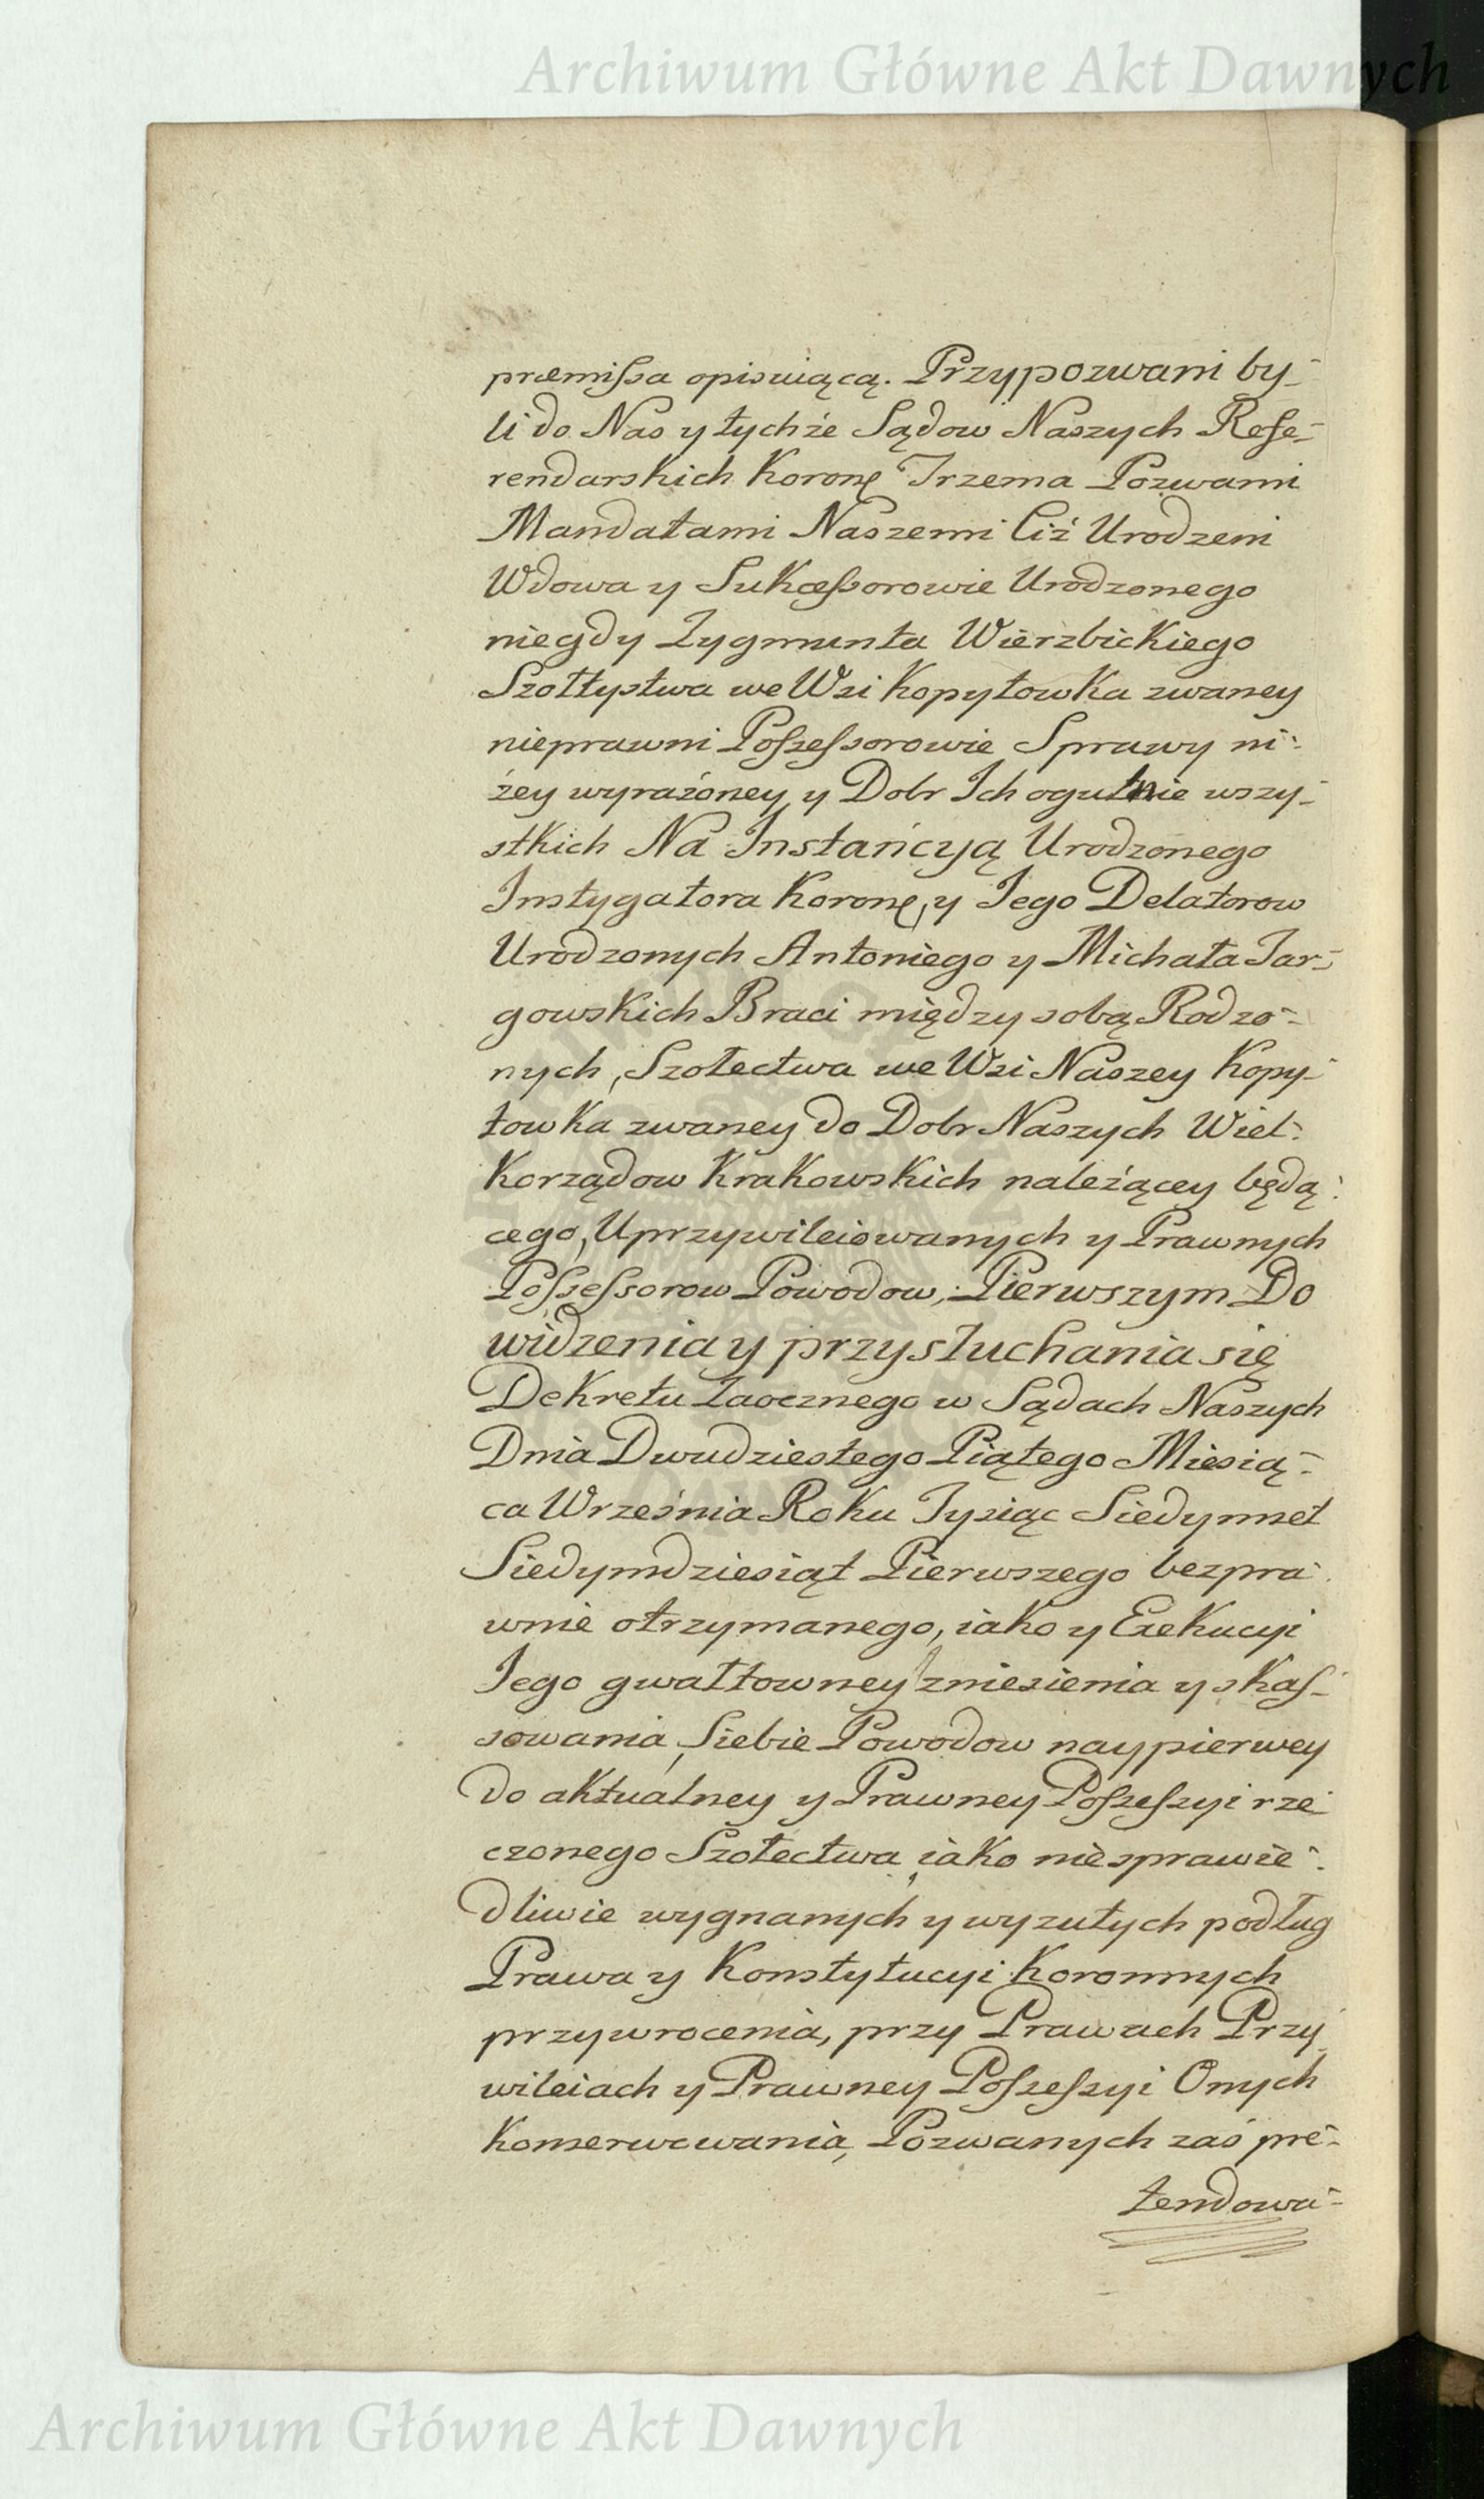 Archiwum Główne Akt Dawnych
præmissa opisuiącą. Przypozwani by-
li do Nas y tychże Sądow Naszych Refe-
rendarskich Koronę Trzema Pozwami
Mandatami Naszemi Ciż Urodzeni
Wdowa y Sukcessorowie Urodzonego
niegdy Zygmunta Wierzbickiego
Szołtystwa we Wsi Kopytowka zwaney
nieprawni Possessorowie Sprawy ni-
żey wyrażoney y Dobr Ich ogulnie wszy-
stkich Na Instańcyą Urodzonego
Instygatora Koronę, y Jego Delatorow
Urodzonych Antoniego y Michała Tar-
gowskich Braci między sobą Rodzo-
nych, Szołectwa we Wsi Naszey Kopy-
towka zwaney do Dobr Naszych Wiel-
korządow Krakowskich należącey będą-
cego, Uprzywileiowanych y Prawnych
Possessorow Powodow, Pierwszym Do
widzenia y przysłuchania się
Dekretu Zaocznego w Sądach Naszych
Dnia Dwudziestego Piątego Miesią-
ca Września Roku Tysiąc Siedymset
Siedymdziesiąt Pierwszego bezpra-
wnie otrzymanego, iako y Exekucyi
Jego gwałtowney zniesienia y skas-
sowania, Siebie Powodow naypierwey
do aktualney y Prawney Possessyi rze-
czonego Szołectwa, iako niesprawie-
dliwie wygnanych y wyzutych podług
Prawa y Konstytucyi Koronnych
przywrocenia, przy Prawach Przy-
wileiach y Prawney Possessyi Onych
Konserwowania, Pozwanych zaś pre-
tendowa-
Archiwum Główne Akt Dawnych